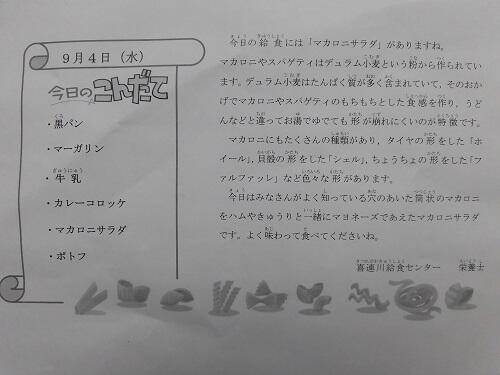 9月4日（水）
今日のこんだて
・黒パン
・マーガリン
・牛乳
・カレーコロッケ
・マカロニサラダ
・ポトフ
今日の給食には「マカロニサラダ」がありますね。
マカロニやスパゲティはデュラム小麦という粉から作られてい
ます。デュラム小麦はたんぱく質が多く含まれていて、そのおか
げでマカロニやスパゲティのもちもちとした食感を作り、うど
んなどと違ってお湯でゆでても形が崩れにくいのが特徴です。
マカロニにもたくさんの種類があり、タイヤの形をした「ホ
イール」、貝殻の形をした「シェル」、ちょうちょの形をした「フ
ァルファッレ」など色々な形があります。
今日はみなさんがよく知っている穴のあいた筒状のマカロニ
をハムやきゅうりと一緒にマヨネーズであえたマカロニサラダ
です。よく味わって食べてくださいね。
喜連川給食センター　栄養士